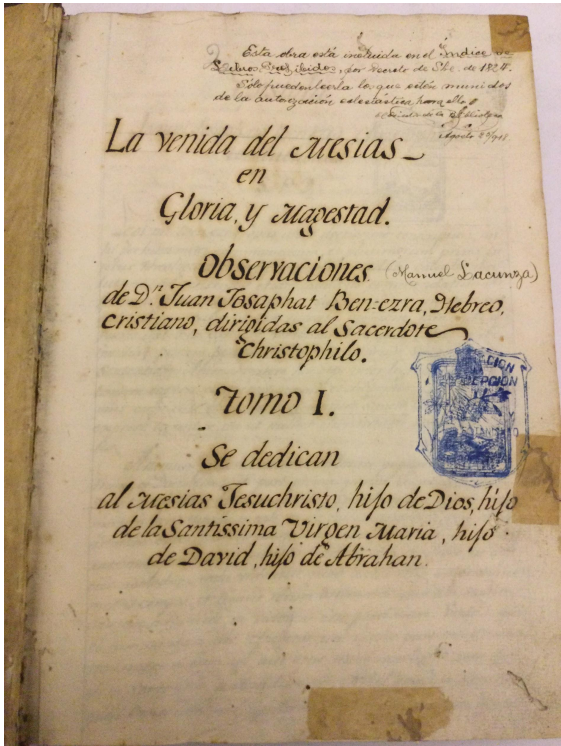 Esta obra está incluida en el Indice de
Libros Prohibidos, por decreto de Sbe. de 1824.
Sólo pueden leerla los que estén munidos
de la autorización eclesiástica, para ello
Agosto 29/918
La venida del Mesias
en
Gloria, y Magestad.
Observaciones (Manuel Lacunza)
de Dn. Juan Josaphat Ben-ezra, Hebreo,
cristiano, dirigidas al Sacerdote
Christophilo.
Tomo I.
Se dedican
al Mesias Jesuchristo, hijo de Dios, hijo
de la Santissima Virgen Maria, hijo
de David, hijo de Abrahan.